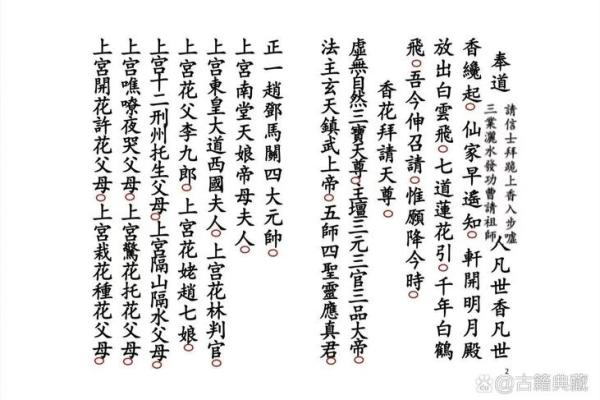 奉道
請信士拜跪上香入步噓
三業灑水發功曹請祖師
人凡世香凡世
香纔起。仙家早遙知。軒開明月殿
放出白雲飛。七道蓮花引。千年白鶴
飛。吾今伸召請。惟願降今時。
香花拜請天尊。
虛無自然三寶天尊。王壇三元三官三品大帝。
法主玄天鎮武上帝。五師四聖靈應真君。
正一趙鄧馬關四大元帥。
上宮南堂天娘帝母夫人。
上宮東皇大道西國夫人。上宮花林判官。
上宮花父李九郎。上宮花姥趙七娘。
上宮十二刑州托生父母。上宮隔山隔水父母。
上宮噍嘹夜哭父母。上宮驚花托花父母。
上宮開花許花父母。上宮栽花種花父母。
2
@古籍典藏